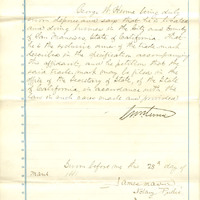 George H. Moore being duly
sworn deposes and says that he is located
and doing business in the City and County
of San Francisco State of California. That
he is the exclusive owner of the trade mark
described in the declaration accompanying
this affidavit, and he petitions that
said trade mark may be placed in the
of the Secretary of State, of the State
of California, in accordance with the
law in such cases made and provided.
Sworn before me this 28th day of
March
James
Notary Public